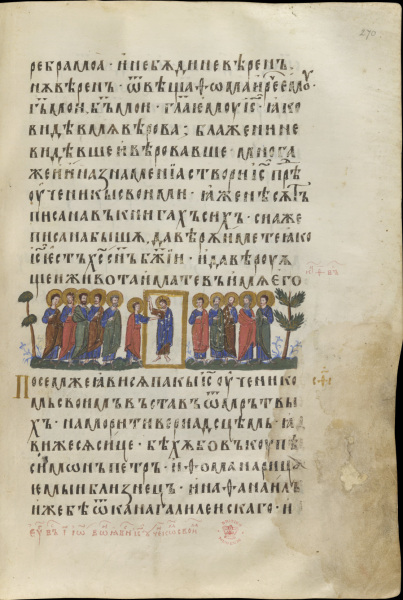 ребра моа · и не бѫди невѣренъ
нѫ вѣренъ · ѿвѣща ѳома и рече емоу ·
гь мои · бъ мои · гла емоу іс · ꙗко
видѣв мѧ вѣрова ; блажени не
видѣвшеи вѣровавше · многа
же и ина знаменіа створи іс прѣд
оученикы своими · ꙗже не сѫтъ
писана въ книгахъ сихъ · сиа же
писана бышѫ да вѣрѫ имете ꙗко
іс естъ хс снъ бжіи · и да вѣроуѫ
ще живота имате въ имѧ его
По семже ꙗви сѧ пакы іс оученико
мъ своимъ въставъ ѿ мрътвы
хъ · на мори тивериадсцѣмь · ꙗ
ви же сѧ сице · бѣхѫ въкоупѣ
симѡнъ петръ · и ѳома нарица
емыи близнецъ · и наѳанаилъ
иже бѣ ѿ кана галилеискаго · и
270